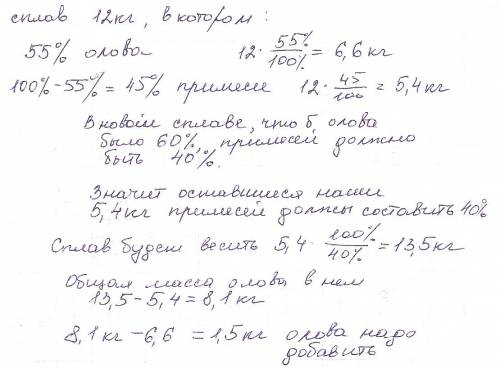 сплав 12кг, в котором:
55% олова 12 · 55%/100% = 6,6 кг
100% - 55% = 45% примеси 12 · 45/100 = 5,4 кг
В новом сплаве, что б олова
было 60%, примесей должно
быть 40%.
Значит оставшиеся наши
5,4 кг примесей должны составить 40%
Сплав будет весить 5,4 · 100%/40% = 13,5 кг
Общая масса олова в нем
13,5 - 5,4 = 8,1 кг
8,1 кг - 6,6 = 1,5 кг олова надо
добавить